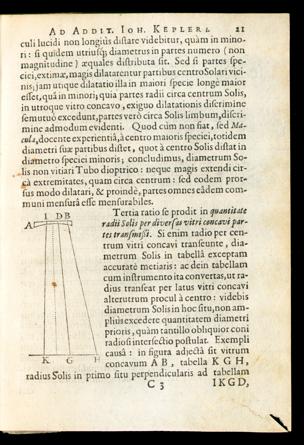 AD ADDIT. IOH. KEPLERI. 21
culi lucidi non longiùs distare videbitur, quàm in mino-
ri: si quidem utriusq; diametrus in partes numero (non
magnitudine) æquales distributa sit. Sed si partes spe-
ciei, extimæ, magis dilatarentur partibus centro Solari vici-
nis; jam utique dilatatio illa in majori specie longè major
esset, quà in minori; quia partes radii circa centrum Solis,
in utroque vitro concavo, exiguo dilatationis discrimine
se mutuò excedunt, partes verò circa Solis limbum, discri-
mine admodum evidenti. Quod cùm non fiat, sed Ma-
cula, docente experientiâ, à centro maioris speciei, totidem
diametri suæ partibus distet, quot à centro Solis distat in
diametro speciei minoris; concludimus, diametrum So-
lis non vitiari Tubo dioptrico: neque magis extendi cir-
ca extremitates, quam circa centrum: sed codem pror-
sus modo dilatari, & proinde, partes omnes eâdem com-
muni mensurâ esse mensurabiles.
Tertia ratio se prodit in quantitate
radii Solis per diversas vitri concavi par-
tes transmissi. Si enim radio per cen-
trum vitri concavi transeunte, dia-
metrum Solis in tabellâ exceptam
accuratè metiaris: ac dein tabellam
cum instrumento ita convertas, ut ra-
dius transeat per latus vitri concavi
alterutrum procul à centro: videbis
diametrum Solis in hoc situ, non am-
pliùs excedere quantitatem diametri
prioris, quàm tantillo obliquior coni
radiosi intersectio postulat. Exempli
causâ: in figura adjectâ sit vitrum
concavum A B, tabella K G H,
radius Solis in primo situ perpendicularis ad tabellam
C 3 I K G D,
I D B
A
K G H